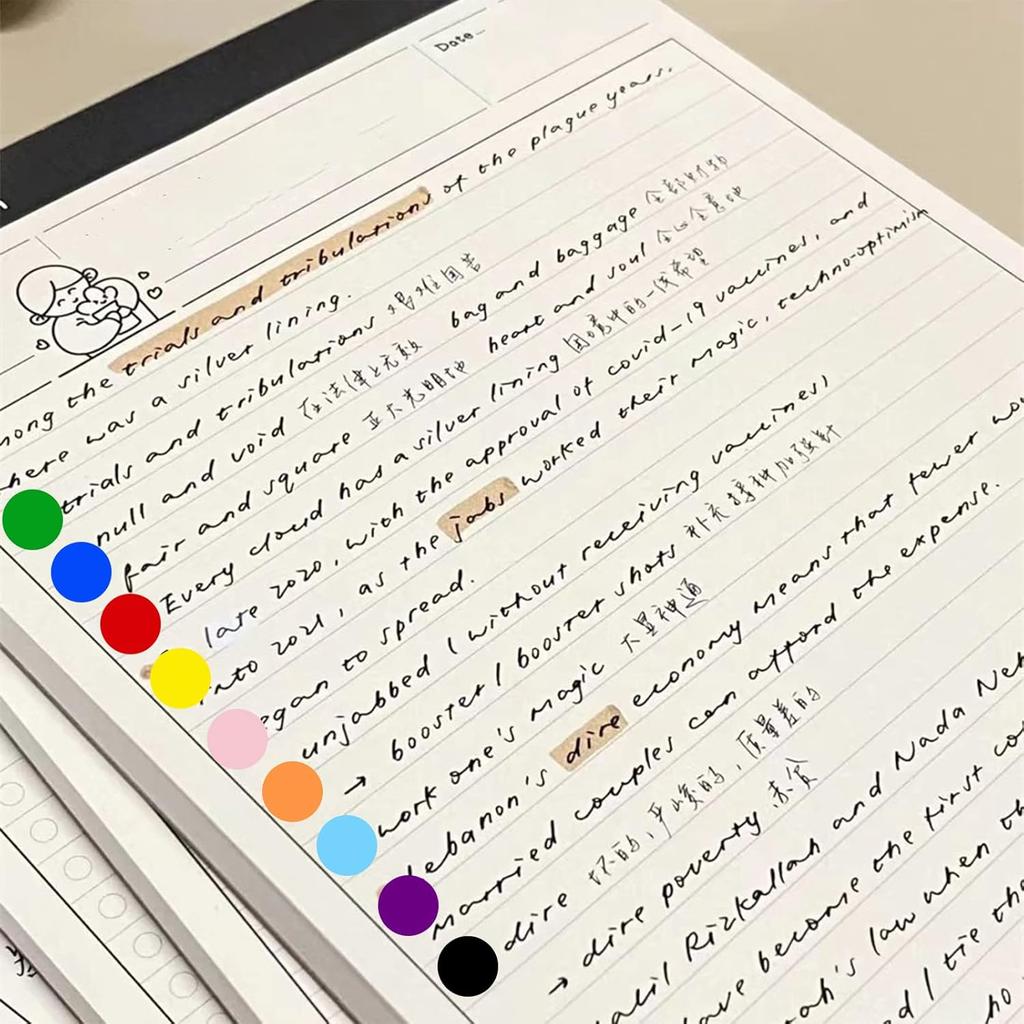 Date
mong the trials and tribulations of the plague years,
here was a silver lining.
trials and tribulations 艰难困苦 bag and baggage 全部财物
null and void 在法律上无效 heart and soul 全心全意地
fair and square 正大光明地
Every cloud has a silver lining 困境中的一线希望
late 2020, with the approval of covid-19 vaccines, and
into 2021, as the jabs worked their magic, techno-optimism
egan to spread.
unjabbed (without receiving vaccines)
→ booster / booster shots 补充接种加强针
work one's magic 大显神通
Lebanon's dire economy means that fewer
married couples can afford the expense.
dire 坏的,严峻的,质量差的
→ dire poverty 赤贫
alil Rizkallah and Nada
ave become the first
ah's law when
d / tie the